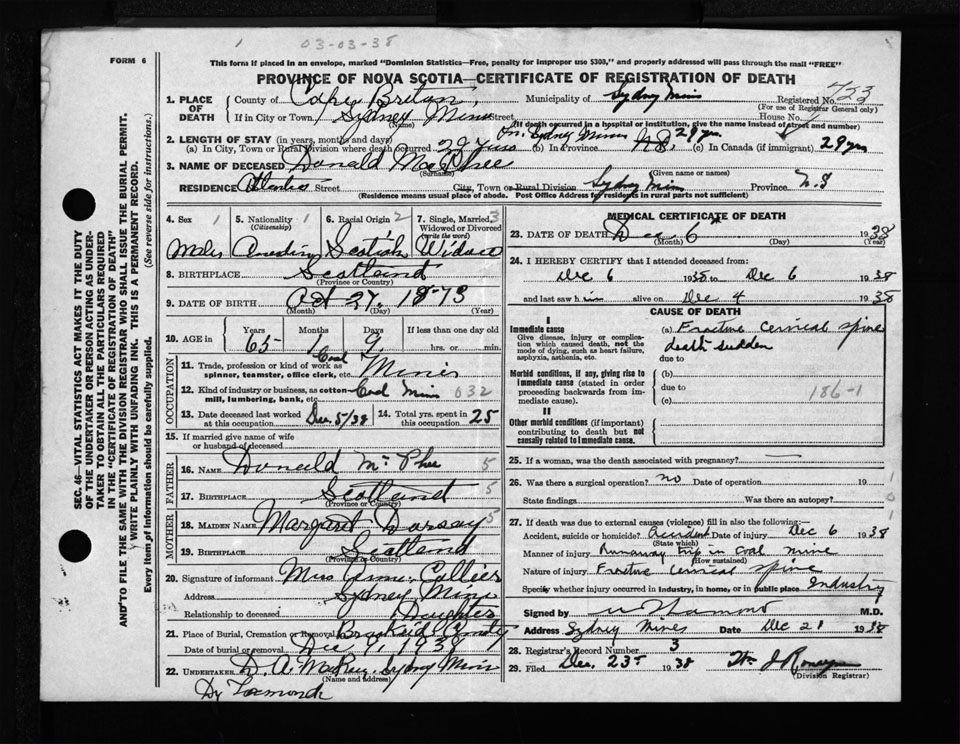 1 03-03-38
FORM 6
This form if placed in an envelope, marked "Dominion Statistics—Free, penalty for improper use $300," and properly addressed will pass through the mail "FREE"
PROVINCE OF NOVA SCOTIA—CERTIFICATE OF REGISTRATION OF DEATH
423
1. PLACE OF DEATH County of Cape Breton, Municipality of Sydney Mines Registered No.
(For use of Registrar General only)
If in City or Town Sydney Mines Street House No.
(Name) (If death occurred in a hospital or institution, give the name instead of street and number)
2. LENGTH OF STAY (in years, months and days) In Sydney Mines
(a) In City, Town or Rural Division where death occurred 29 yrs (b) In Province N.S. 29 yrs. (c) In Canada (if immigrant) 29 yrs
3. NAME OF DECEASED Donald MacPhee
(Surname) (Given name or names)
RESIDENCE Atlantic Street City, Town or Rural Division Sydney Mines Province N.S
(Residence means usual place of abode. Post Office Address for residents in rural parts not sufficient)
4. Sex 1 5. Nationality 1 (Citizenship) 6. Racial Origin 2 7. Single, Married, 3 Widowed or Divorced (write the word)
Male Scotish
8. BIRTHPLACE Scotland
(Province or Country)
9. DATE OF BIRTH Oct 27. 1873
(Month) (Day) (Year)
10. AGE in Years Months Days If less than one day old
63 1 9 hrs. or min.
OCCUPATION
11. Trade, profession or kind of work as spinner, teamster, office clerk, etc. Coal Miner
12. Kind of industry or business, as cotton mill, lumbering, bank, etc. Coal Mine 032
13. Date deceased last worked at this occupation Dec. 5/38 14. Total yrs. spent in this occupation 25
15. If married give name of wife or husband of deceased
FATHER
16. NAME Donald McPhee 5
17. BIRTHPLACE Scotland 5
(Province or Country)
MOTHER
18. MAIDEN NAME Margaret 5
19. BIRTHPLACE Scotland
(Province or Country)
20. Signature of informant Collier
Address Sydney Mines
Relationship to deceased Daughter
21. Place of Burial, Cremation or Removal
Date of burial or removal Dec 9, 1938
22. UNDERTAKER D. A. Sydney Mines
(Name and address)
MEDICAL CERTIFICATE OF DEATH
23. DATE OF DEATH Dec 6 1938
(Month) (Day) (Year)
24. I HEREBY CERTIFY that I attended deceased from:
Dec 6 1938 to Dec 6 1938
and last saw him alive on Dec 4 1938
CAUSE OF DEATH
I
Immediate cause (a) Fracture cervical spine
Give disease, injury or complication which caused death, not the mode of dying, such as heart failure, asphyxia, asthenia, etc.
death sudden
due to
Morbid conditions, if any, giving rise to Immediate cause (stated in order proceeding backwards from immediate cause).
(b)
due to
(c) 186-1
II
Other morbid conditions (if important) contributing to death but not causally related to Immediate cause.
25. If a woman, was the death associated with pregnancy? —
26. Was there a surgical operation? no Date of operation 19
State findings Was there an autopsy?
27. If death was due to external causes (violence) fill in also the following:—
Accident, suicide or homicide? accident Date of injury Dec 6 1938
(State which)
Manner of injury Runaway trip in coal mine
(How sustained)
Nature of injury Fracture cervical spine
Specify whether injury occurred in industry, in home, or in public place Industry
Signed by M.D.
Address Sydney Mines Date Dec 21 1938
28. Registrar's Record Number 3
29. Filed Dec. 23 1938
(Division Registrar)
SEC. 46—VITAL STATISTICS ACT MAKES IT THE DUTY
OF THE UNDERTAKER OR PERSON ACTING AS UNDERTAKER
TO OBTAIN ALL THE PARTICULARS REQUIRED
IN THE "CERTIFICATE OF REGISTRATION OF DEATH"
AND TO FILE THE SAME WITH THE DIVISION REGISTRAR WHO SHALL ISSUE THE BURIAL PERMIT.
WRITE PLAINLY WITH UNFADING INK. THIS IS A PERMANENT RECORD.
Every item of Information should be carefully supplied. (See reverse side for instructions.)